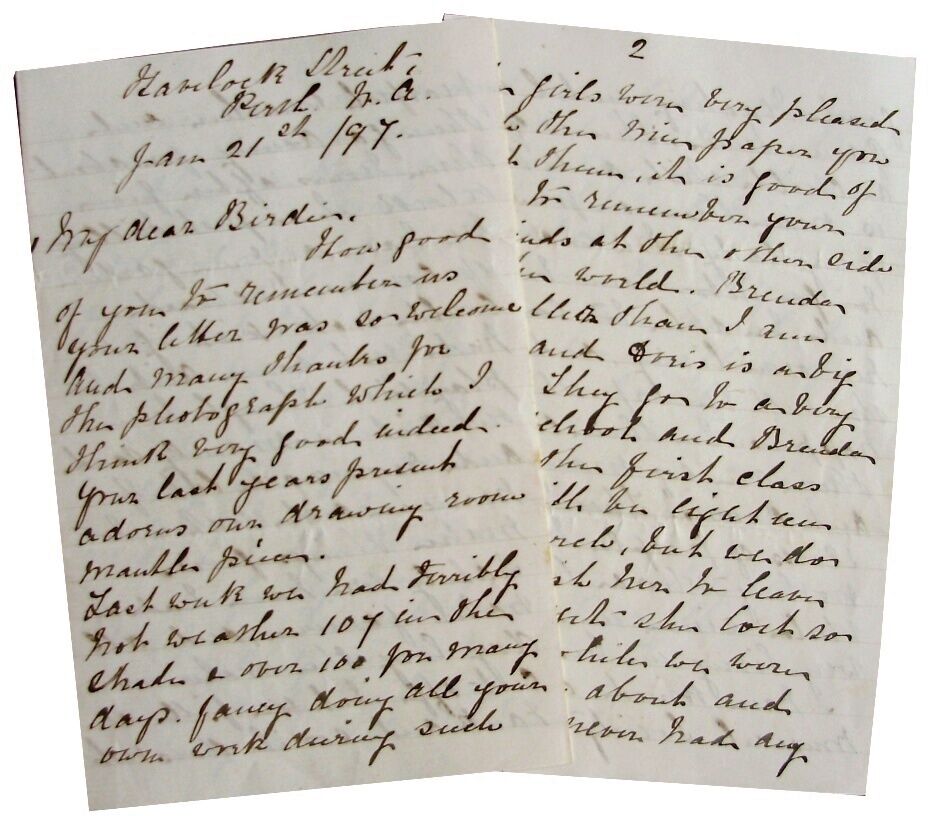 Havelock Street
Perth. W. A.
Jan 21st /97.
My dear Birdie,
How good
of you to remember us
your letter was so welcome
and many thanks for
the photograph which I
think very good indeed.
your last years present
adorns our drawing room
mantle piece.
Last week we had terribly
hot weather 107 in the
shade & over 100 for many
days. fancy doing all your
own work during such
2
girls were very pleased
the nice paper you
them, it is good of
to remember your
at the other side
world. Brenda
than I am
and Doris is a big
They go to a very
school and Brenda
the first class
be eighteen
but we do
her to leave
she lost so
while we were
about and
never had any